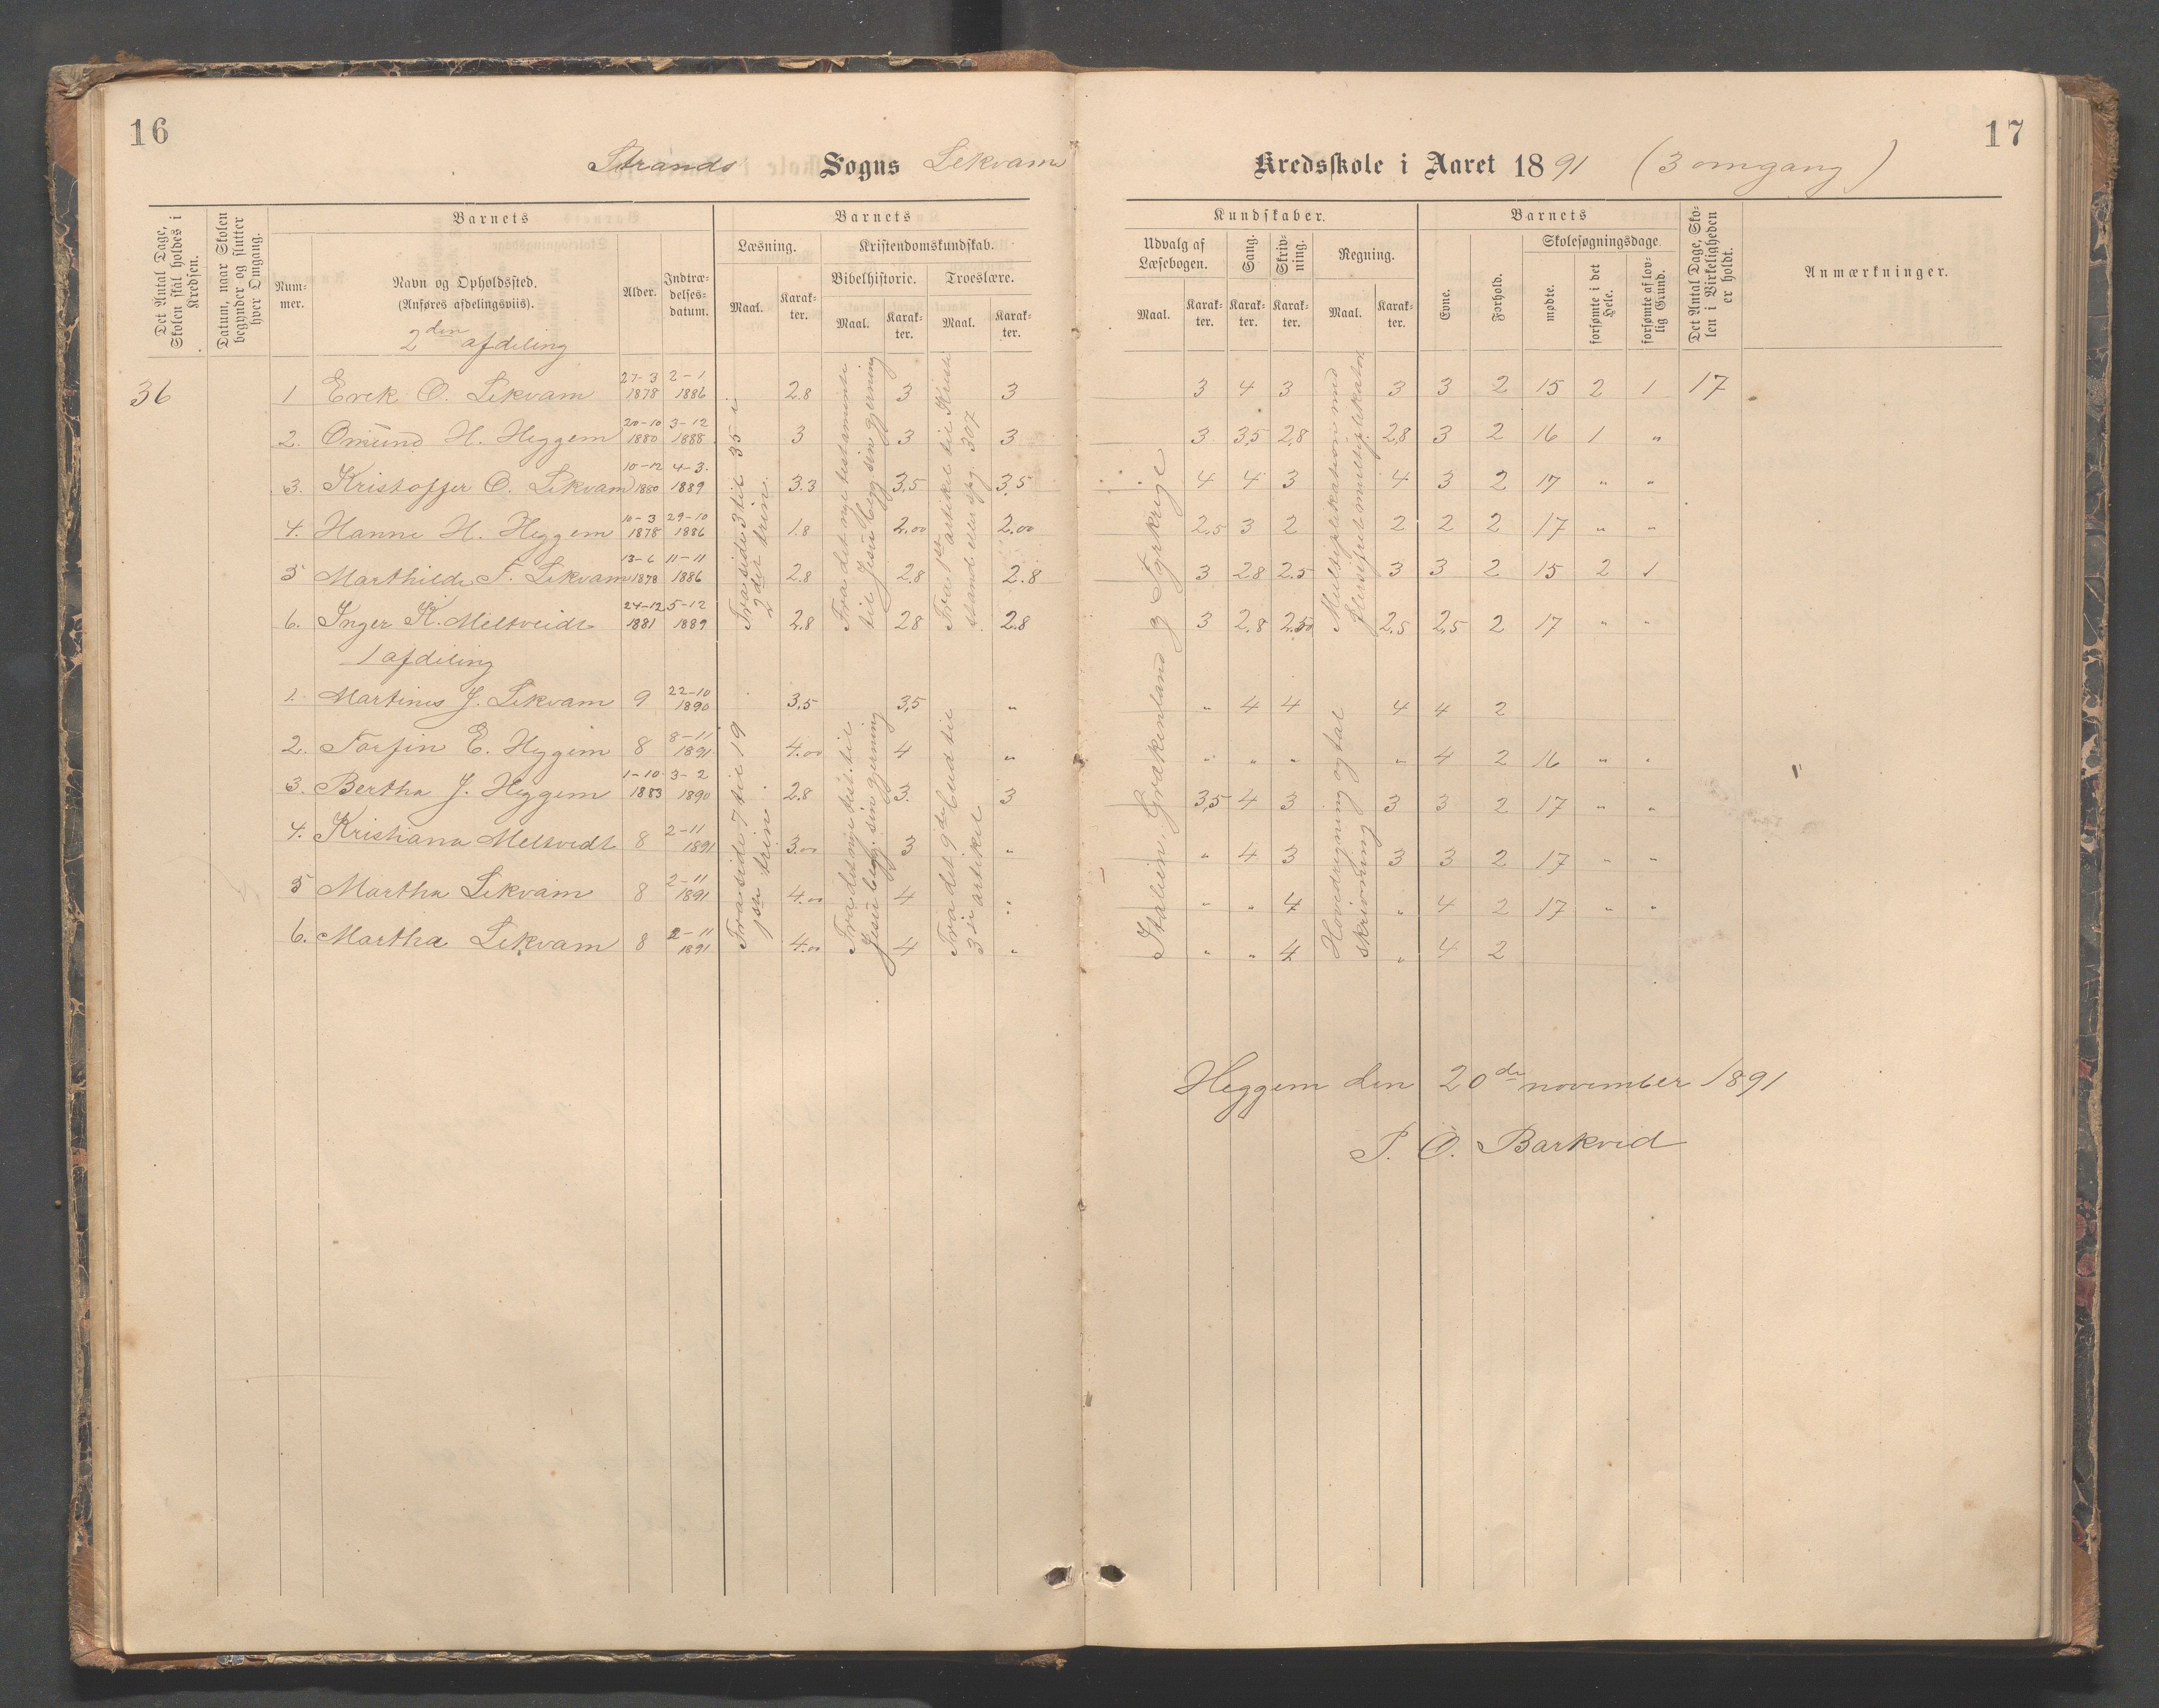 16
17
Strands Sogns Lekvam Kredsskole i Aaret 1891 (3 omgang)
Det Antal Dage, Skolen skal holdes i Kredsen.
Datum, naar Skolen begynder og slutter hver Omgang.
Barnets
Nummer.
Navn og Opholdssted.
(Anføres afdelingsviis).
Alder.
Indtrædelsesdatum.
Barnets
Læsning.
Maal.
Karakter.
Kristendomskundskab.
Bibelhistorie.
Maal.
Karakter.
Troeslære.
Maal.
Karakter.
Kundskaber.
Udvalg af Læsebogen.
Maal.
Karakter.
Sang.
Karakter.
Skrivning.
Karakter.
Regning.
Maal.
Karakter.
Barnets
Evne.
Forhold.
Skolesøgningsdage.
mødte.
forsømte i det Hele.
forsømte af lovlig Grund.
Det Antal Dage, Skolen i Virkeligheden er holdt.
Anmærkninger.
2den afdeling
36 1 Erek O. Lekvam 27-3 1878 2-1 1886 2.8 3 3 3 4 3 3 3 2 15 2 1 17
2. Omund H. Heggem 20-10 1880 3-12 1888 3 3 3 3 3,5 2,8 2,8 3 2 16 1 "
3. Kristoffer O. Lekvam 10-12 1880 4-3 1889 3.3 3,5 3,5 4 4 3 4 3 2 17 " "
4. Hanne H. Heggem 10-3 1878 29-10 1886 1.8 2,00 2,00 2,5 3 2 2 2 2 17 " "
5 Marthilde T. Lekvam 13-6 1878 11-11 1886 2.8 2.8 2.8 3 2.8 2.5 3 3 2 15 2 1
6. Inger K. Meltveidt 24-12 1881 5-12 1889 2.8 2.8 2.8 3 2.8 2.50 2.5 2,5 2 17 " "
Fra side 3 til 35 i
2det trin.
Fra det nye testamente
til Jesu begg sin gjerning
Fra 1ste artikel til
307
Multiplikation med
fleresifret multiplikator
Italien, Grækenland og Tyrkrige
1 afdeling
1. Martines J. Lekvam 9 22-10 1890 3,5 3,5 " " 4 4 4 4 2
2. Torfin E. Heggem 8 8-11 1891 4.00 4 " " " " " 4 2 16 " "
3. Bertha J. Heggem 1-10 1883 3-2 1890 2.8 3. 3 3,5 4 3 3 3 2 17 " "
4. Kristiana Meltvedt 8 2-11 1891 3.00 3 " " 4 3 3 3 2 17 " "
5 Martha Lekvam 8 2-11 1891 4.00 4 " " " 4 " 4 2 17 " "
6. Martha Lekvam 8 2-11 1891 4.00 4 " " " 4 " 4 2
Fra side 7 til 19
1ste trin.
Fra det nye test. til
Jesu begg. sin gjerning
Fra det 9de bud til
3die artikel
Hovedregning og tal
skrivning
Heggem den 20de november 1891
P. O. Barkved